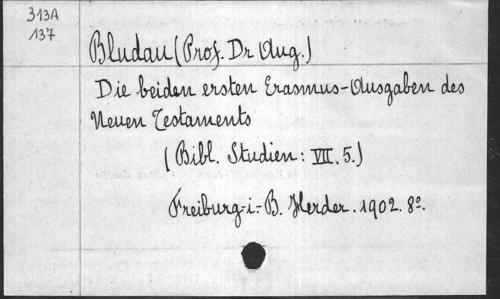 313A
137
Bludau (Prof. Dr Aug.)
Die beiden ersten Erasmus-Ausgaben des
Neuen Testaments
(Bibl. Studien: VII. 5.)
Freiburg-i.-B. Herder. 1902. 8º.